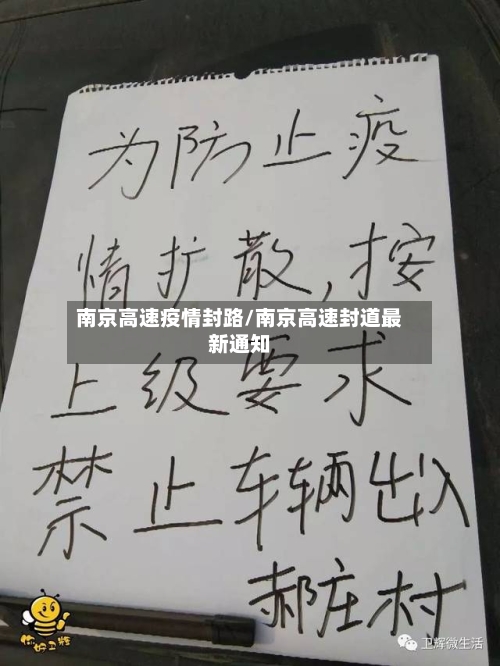 为防止疫
情扩散,按
南京高速疫情封路/南京高速封道最
新通知
上级要求
禁止车辆出入
郝庄村
你好卫辉
卫辉微生活